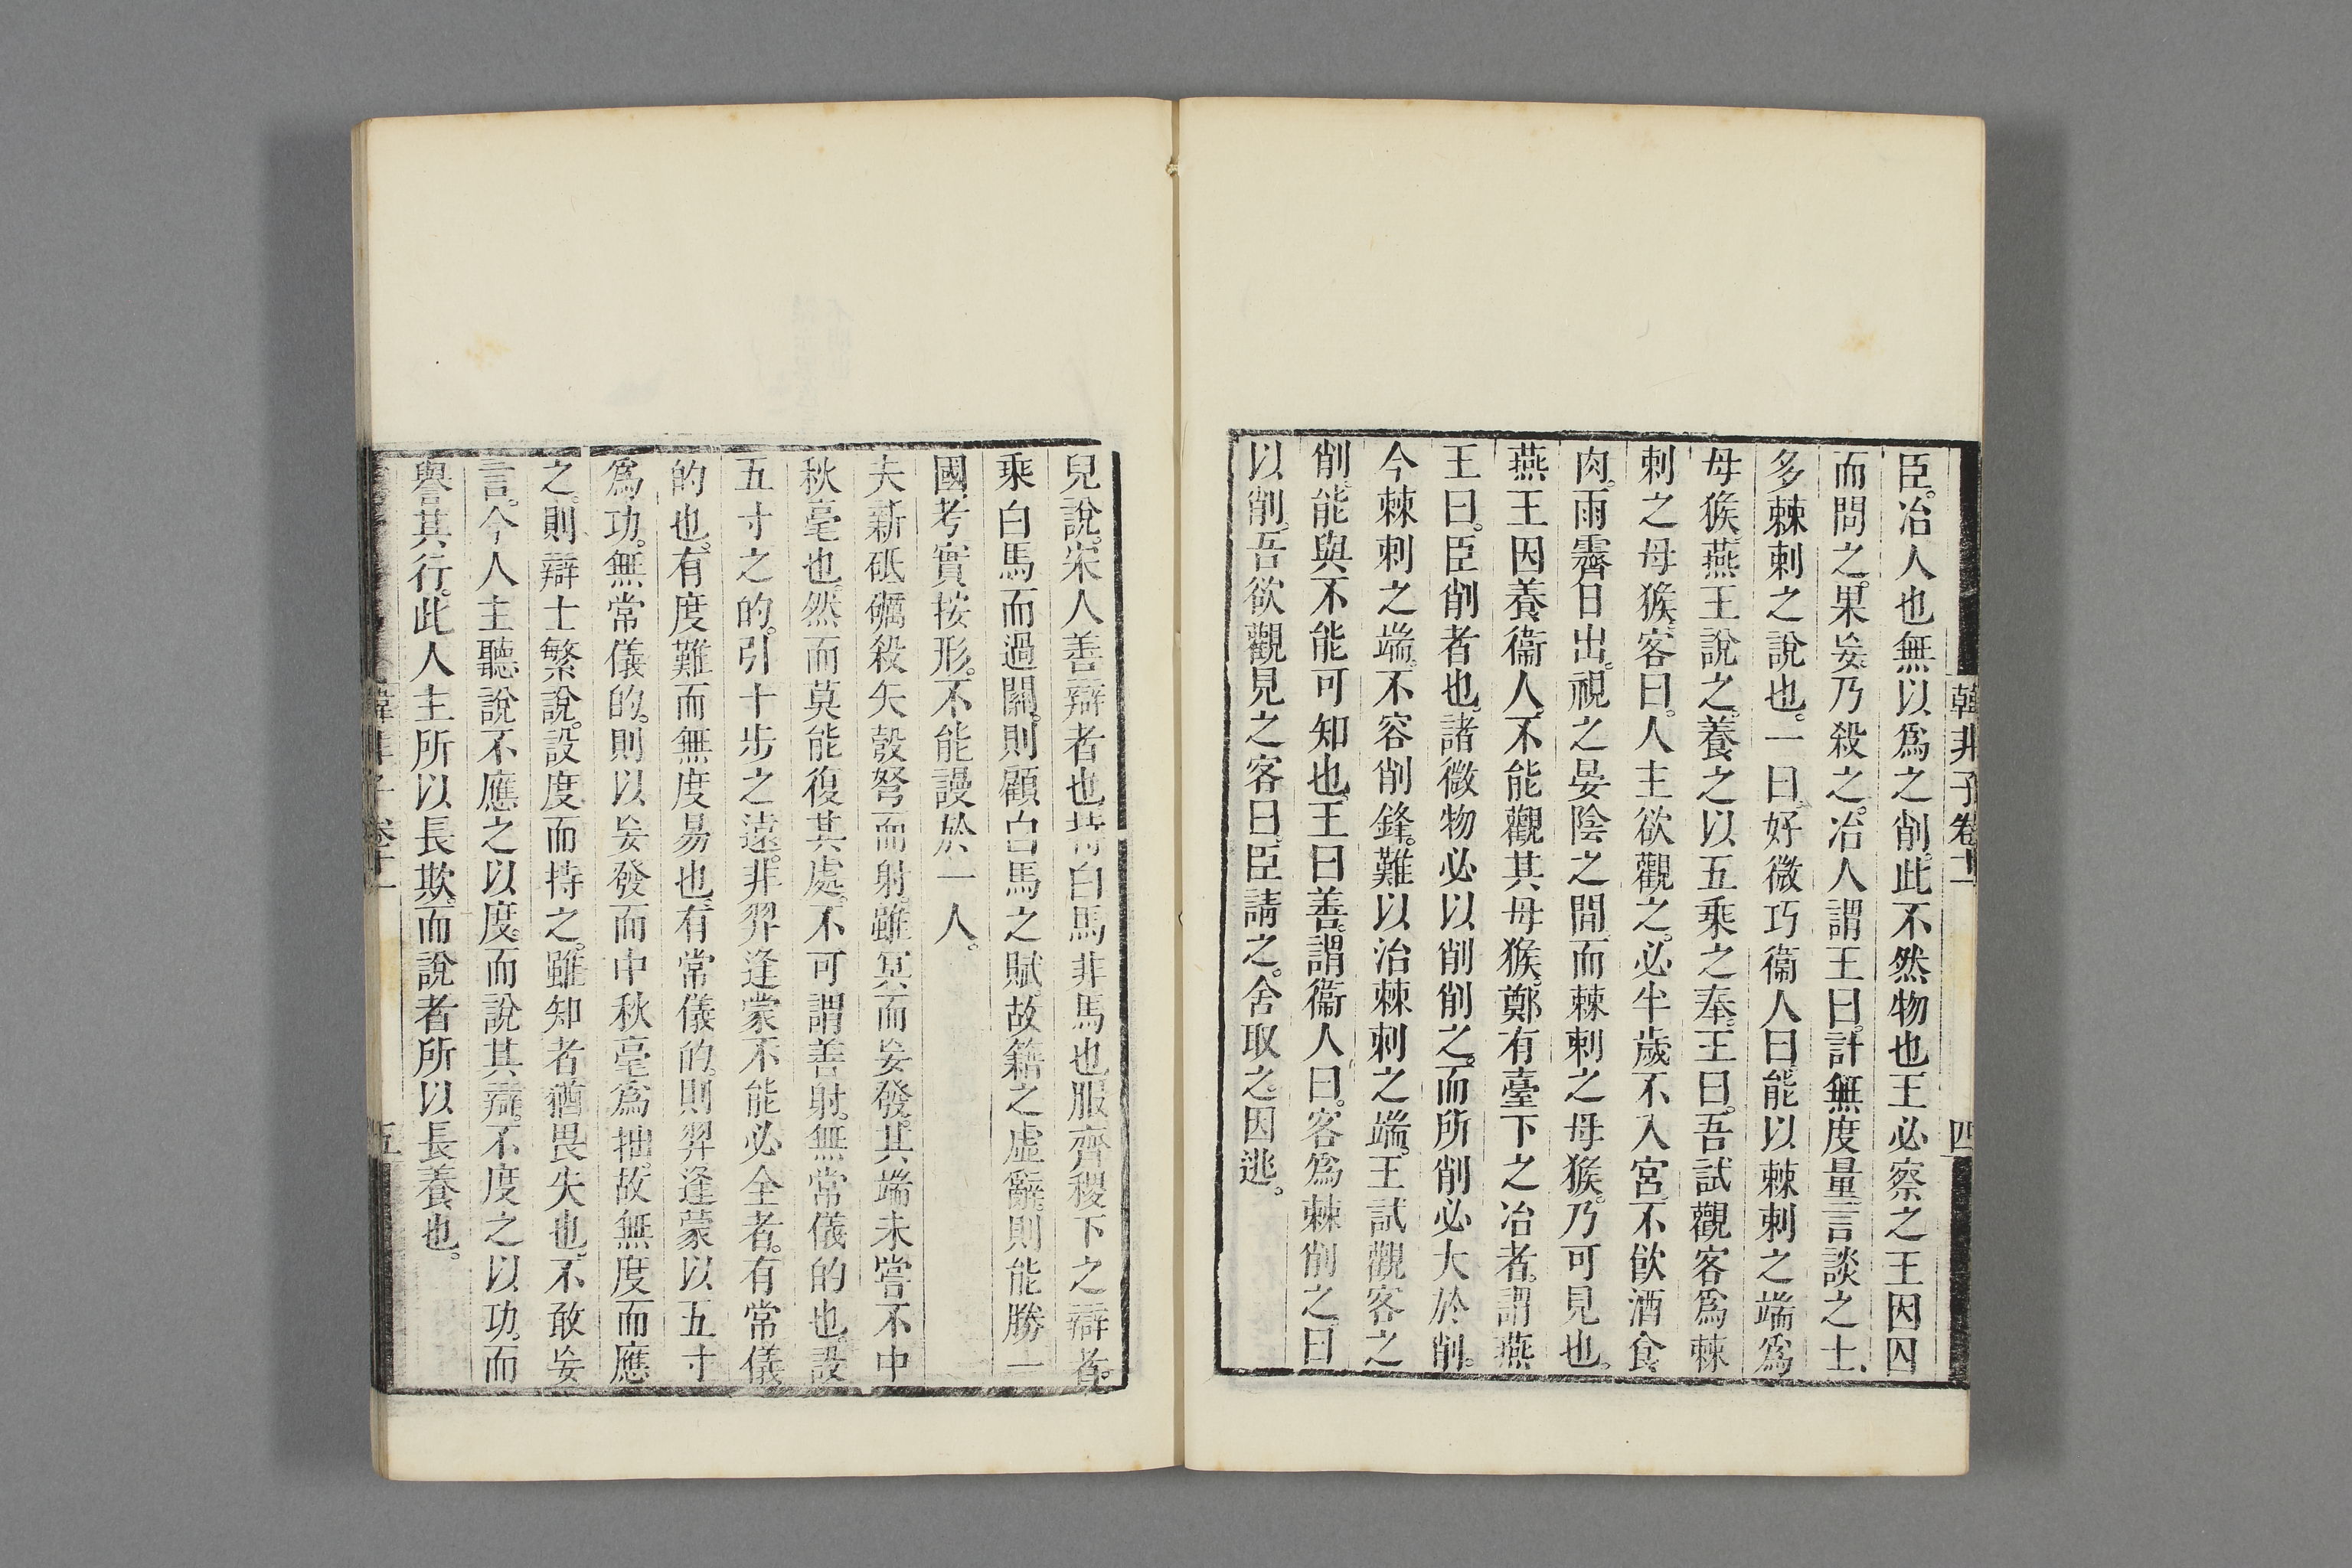 韓非子卷十一
四
臣。冶人也無以爲之削。此不然物也王必察之王因囚
而問之。果妄。乃殺之。冶人謂王曰。計無度量。言談之士、
多棘刺之說也。一曰。好微巧衞人曰。能以棘刺之端爲
母猴。燕王說之。養之以五乘之奉。王曰。吾試觀客爲棘
刺之母猴。客曰。人主欲觀之。必半歲不入宮。不飮酒食
肉。雨霽日出。視之晏陰之閒。而棘刺之母猴。乃可見也。
燕王因養衞人。不能觀其母猴。鄭有臺下之冶者。謂燕
王曰。臣削者也。諸微物必以削削之。而所削必大於削。
今棘刺之端。不容削鋒。難以治棘刺之端。王試觀客之
削。能與不能可知也。王曰善。謂衞人曰。客爲棘削之。曰
以削。吾欲觀見之客曰。臣請之。舍取之。因逃。
兒說。宋人善辯者也持白馬非馬也服齊稷下之辯者。
乘白馬而過關。則顧白馬之賦。故籍之虛辭。則能勝一
國。考實按形。不能謾於一人。
夫薪砥礪殺矢彀弩而射。雖冥而妄發。其端未嘗不中
秋毫也。然而莫能復其處。不可謂善射。無常儀的也。設
五寸之的。引十步之遠。非羿逢蒙不能必全者。有常儀
的也。有度難而無度易也。有常儀的。則羿逢蒙以五寸
爲功。無常儀的。則以妄發而中秋毫爲拙。故無度而應
之。則辯士繁說。設度而持之。雖知者猶畏失也。不敢妄
言。今人主聽說不應之以度。而說其辯。不度之以功。而
譽其行。此人主所以長欺。而說者所以長養也。
韓非子卷十一
五